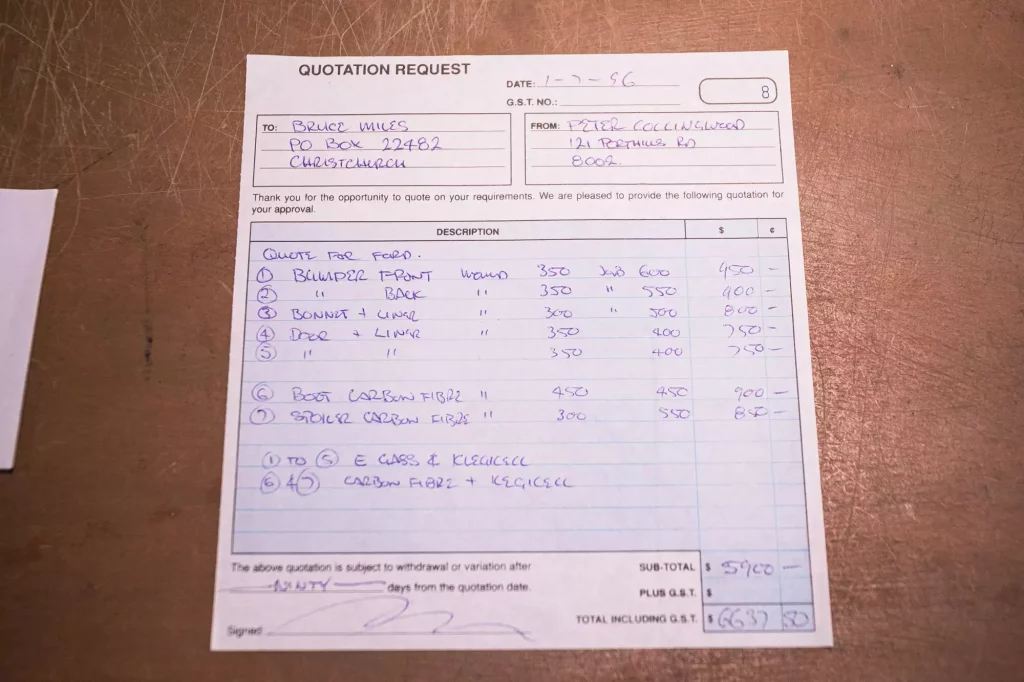 QUOTATION REQUEST
DATE: 1-7-96
8
G.S.T. NO.:
TO: BRUCE MILES
PO BOX 22482
CHRISTCHURCH
FROM: PETER COLLINGWOOD
121 PORTHILLS RD
8002.
Thank you for the opportunity to quote on your requirements. We are pleased to provide the following quotation for
your approval.
DESCRIPTION $ ¢
QUOTE FOR FORD.
① BUMPER FRONT MOULD 350 JOB 600 950 –
② " BACK " 350 " 550 900 –
③ BONNET + LINER " 300 " 500 800 –
④ DOOR + LINER " 350 400 750 –
⑤ " " 350 400 750 –
⑥ BOOT CARBON FIBRE " 450 450 900 –
⑦ SPOILER CARBON FIBRE " 300 550 850 –
① TO ⑤ E GLASS & KLEGICELL
⑥ & ⑦ CARBON FIBRE + KEGICELL
The above quotation is subject to withdrawal or variation after
NINTY days from the quotation date.
Signed
SUB-TOTAL $ 5900 –
PLUS G.S.T. $
TOTAL INCLUDING G.S.T. $ 6637 50